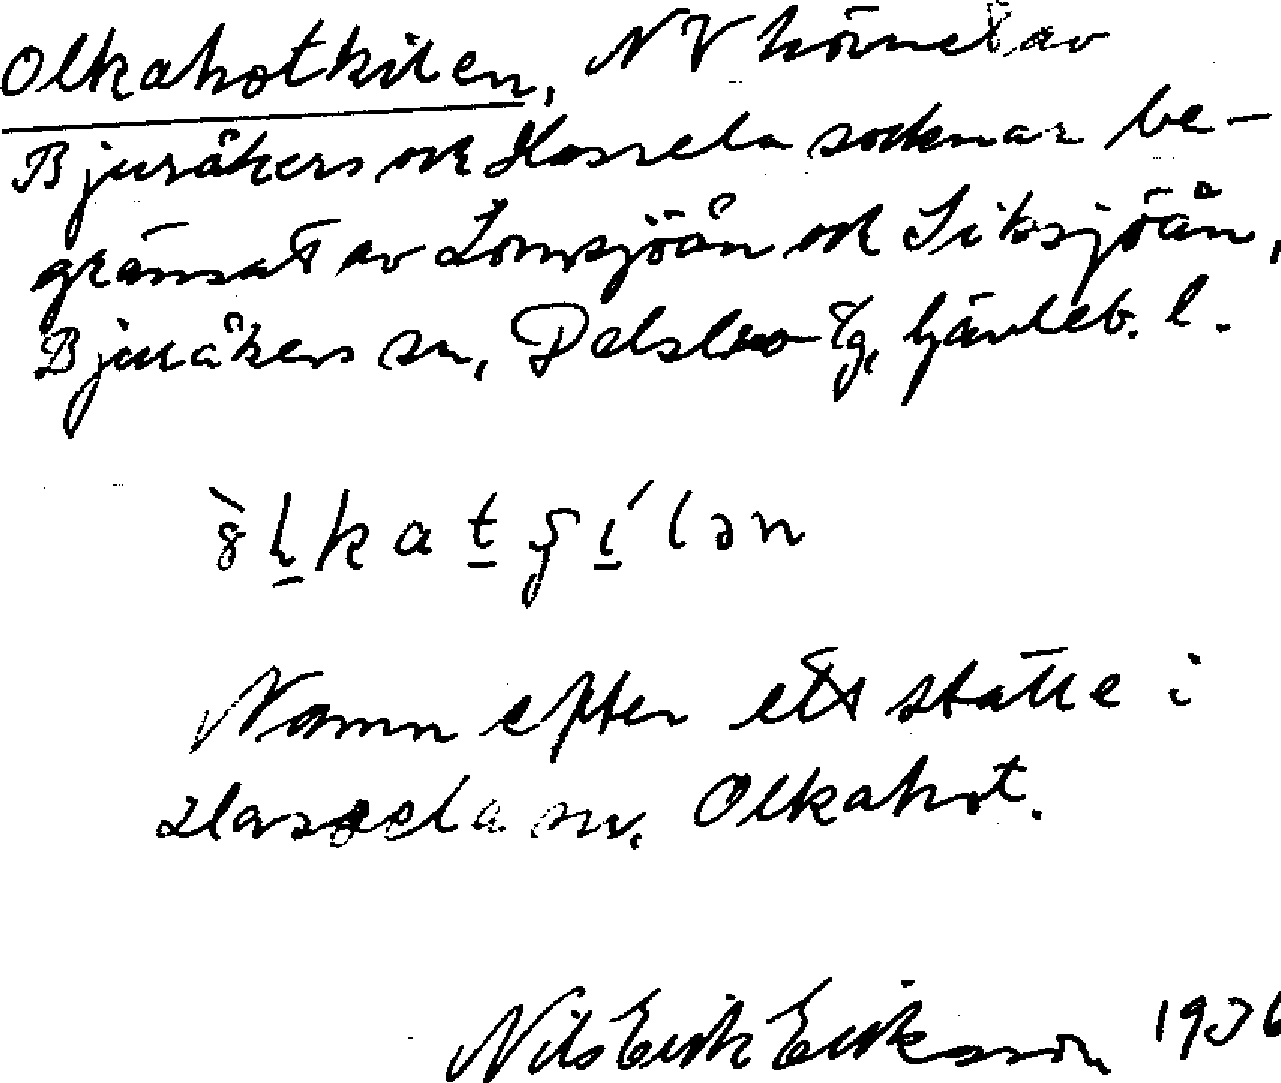 Olkahotkilen, NV hörnet av
Bjuråkers och Hassela socknar be-
gränsat av Lomsjöån och Siksjöån,
Bjuråkers sn, Delsbo tg, Gävleb. l.
Namn efter ett ställe i
Hassela sn. Olkahot.
Nils Erik Eriksson 1936